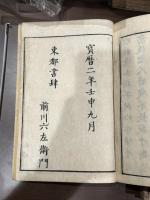 寳曆二年壬申九月
東都書肆
前川六左衛門